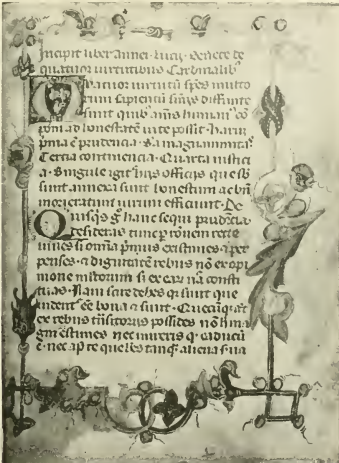 Incipit liber Annei Lucii Senece de
quatuor virtutibus Cardinalib
Quatuor virtutū spēs multo
rum sapientū sniȳs diffinite
sunt quib aīus humanꝰ cō
poni ad honestatē vite possit. harū
pma ē prudencia. 2ᵃ magnanimitas
Tercia continencia. Quarta iustici
a. Singule igit hiis officiis que sb
sunt annexa sunt honestum ac bn
morigeratum uirum efficiunt. De
Quisqs gͦ hanc sequi prudēcia
desideras tunc p rōnem recte
viues si omīa pmius existimes a per
penses. a dignitatē rebus nō ex opi
nione multorum si ex eaꝝ nā consti
tuas. Nam scire debes qr sunt que
videnť eē bona a sunt. Quecūqꝫ āt
ex rebus tnsitoriis possides nō ma
gni estimes nec mireris qꝫ caducū
ē. nec ap te que hēs tanqꝫ aliena sua